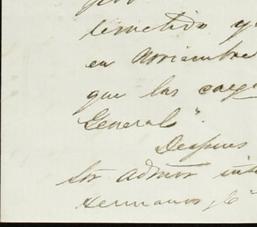 remitido
en noviembre
que las carg
General".
Despues
Sor. Admor int
Hermanos y Cª